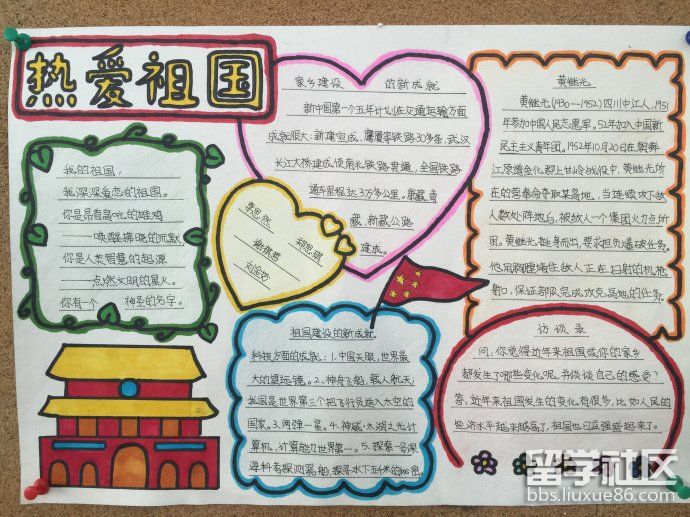 热爱祖国
家乡建设 的新成就
新中国第一个五年计划在交通运输方面
成就很大：新建宝成、鹰厦等铁路30多条，武汉
长江大桥建成，使南北铁路贯通，全国铁路
通车里程达3万多公里。康藏、青
藏、新藏公路
建成。
黄继光
黄继光(1930—1952)四川中江人，1951
年参加中国人民志愿军。52年加入中国新
民主主义青年团。1952年10月20日在朝鲜
江原道金化郡上甘岭战役中，黄继光所
在的营奉命夺取某高地，当连续攻下敌
人数处阵地后，被敌人一个集团火力点所
困。黄继光挺身而出，要求担负爆破任务。
他用胸膛堵住敌人正在扫射的机枪
射口，保证部队完成攻克高地的任务。
我的祖国，
我深深爱恋的祖国。
你是昂首高吭的雄鸡
唤醒拂晓的沉默
你是人类智慧的起源
点燃文明的星火。
你有一个 神圣的名字。
李思然
祖国建设的新成就。
科技方面的成就：1.中国天眼，世界最
大的望远镜。2.神舟飞船，载人航天，
我国是世界第三个把飞行员送入太空的
国家。3.两弹一星。4.神威·太湖之光计
算机，计算能力世界第一。5.探索一号深
海科考探测器船，探寻水下五千米的秘密。
访谈录
问：你觉得近年来祖国或你的家乡
都发生了哪些变化呢，并谈谈自己的感受？
答：近年来祖国发生的变化有很多，比如人民的
经济水平越来越高了，祖国也日益强盛起来了。
留学社区
bbs.liuxue86.com